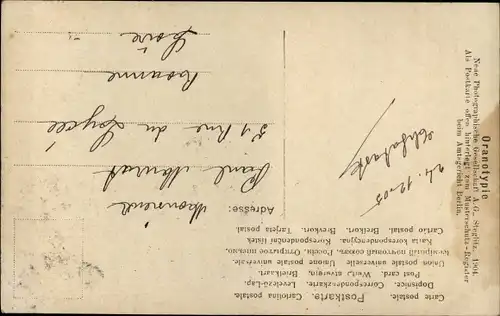 Oranotypie
Neue Photographische Gesellschaft A.G., Steglitz, 1904.
Als Postkarte offen hinterlegt zum Musterschutz-Register
beim Amtsgericht Berlin.
Carte postale. Postkarte. Cartolina postale.
Dopisnice. Correspondenzkarte. Levelező-Lap.
Post card. Brefkaart.
Union postale universelle. Unione postale universale.
Karta korespondencyjna. Korespondenční lístek.
Cartão postal. Brevkort. Brefkort. Tarjeta postal.
Adresse:
Monsieur
Paul
51 Rue du Lycée
Roanne
Loire
24.12.05